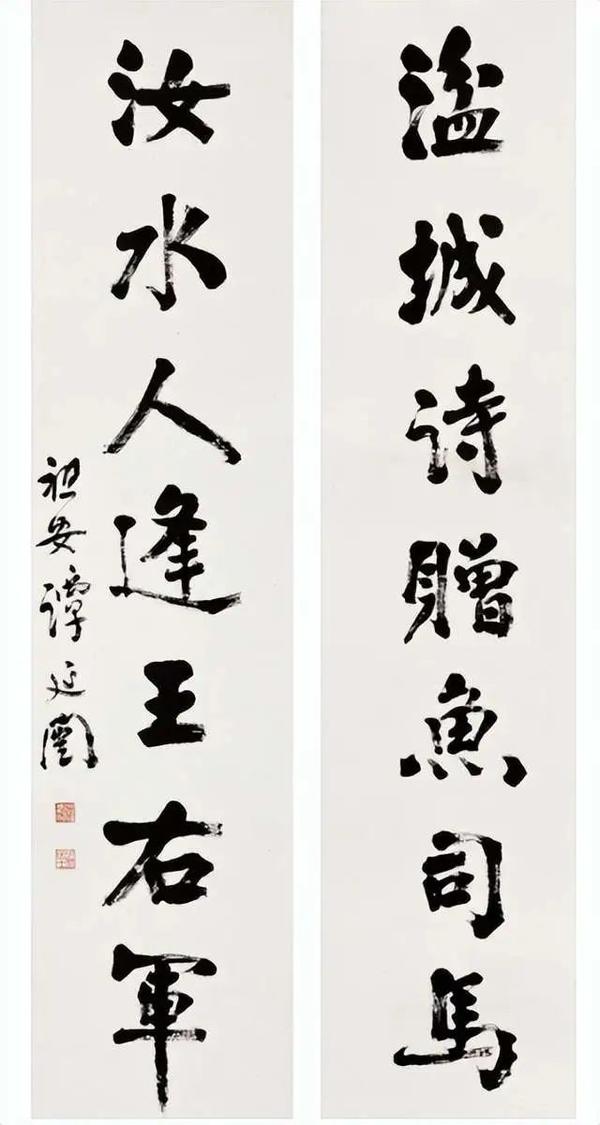 湓城诗贈魚司馬
汝水人逢王右軍
祖安譚延闓